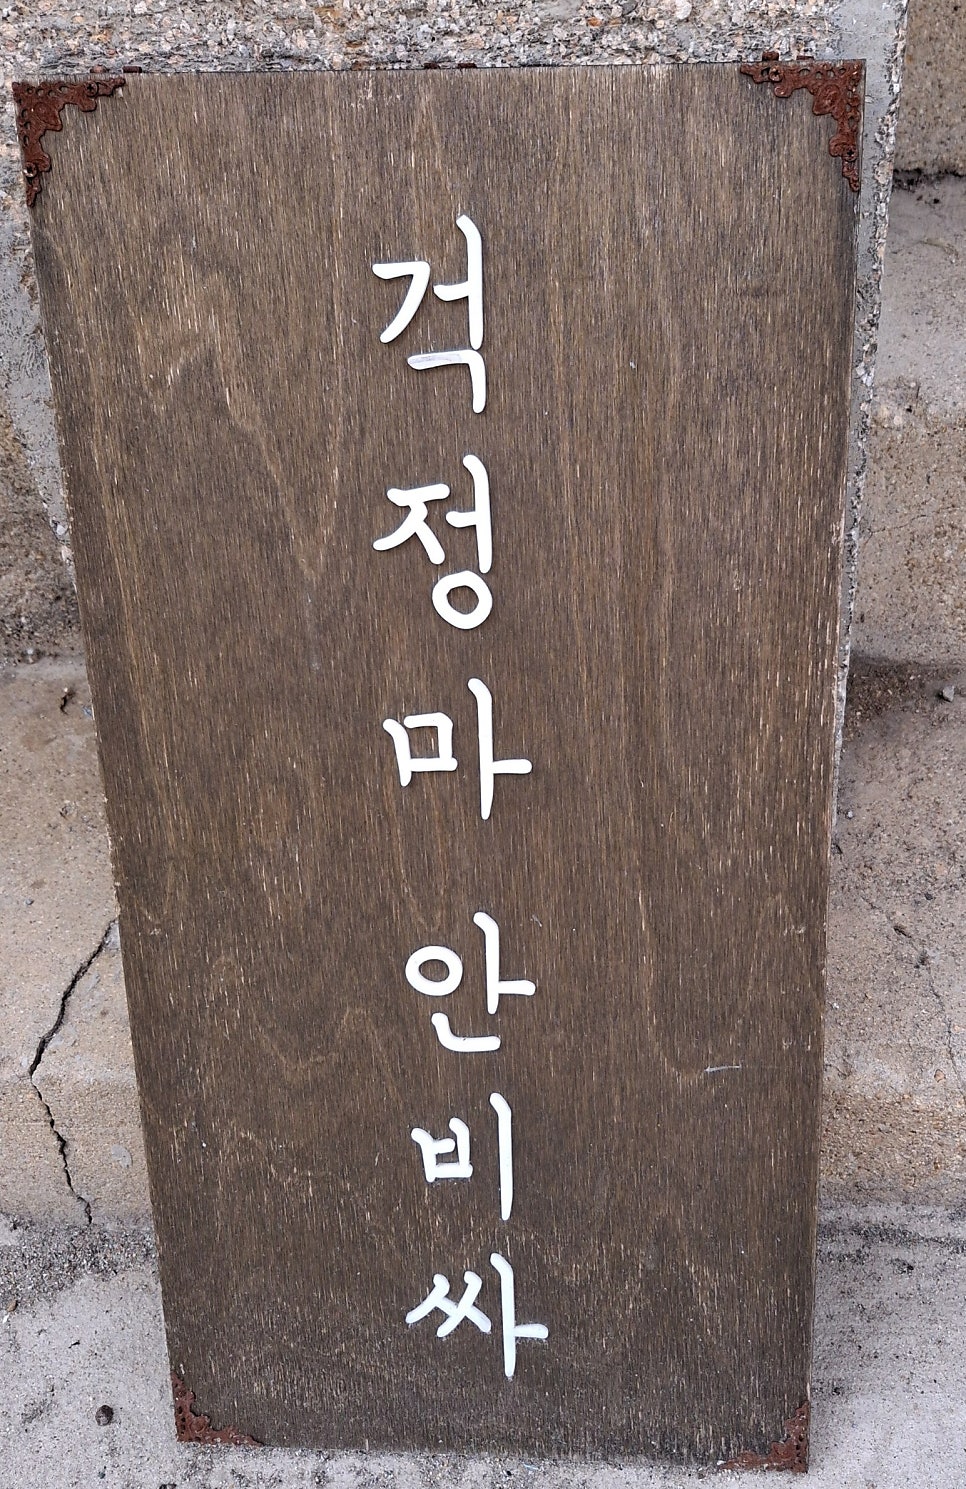 걱정마 안비싸